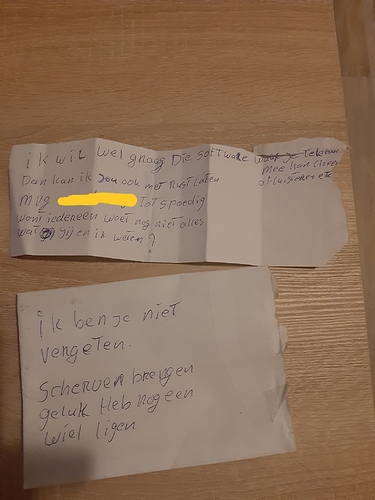 ik wil wel graag Die software waar je telefoon
mee kan Clonen
Dan kan ik jou ook met Rust Laten
afluisteren etc
mvg tot spoedig
want iedereen weet nog niet alles
wat gij en ik weten?
ik ben je niet
vergeten.
Scherven brengen
geluk Heb nog een
wiel ligen